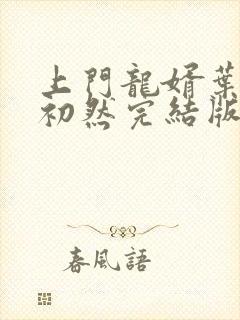 上門龍婿葉
初然完結版
春風語